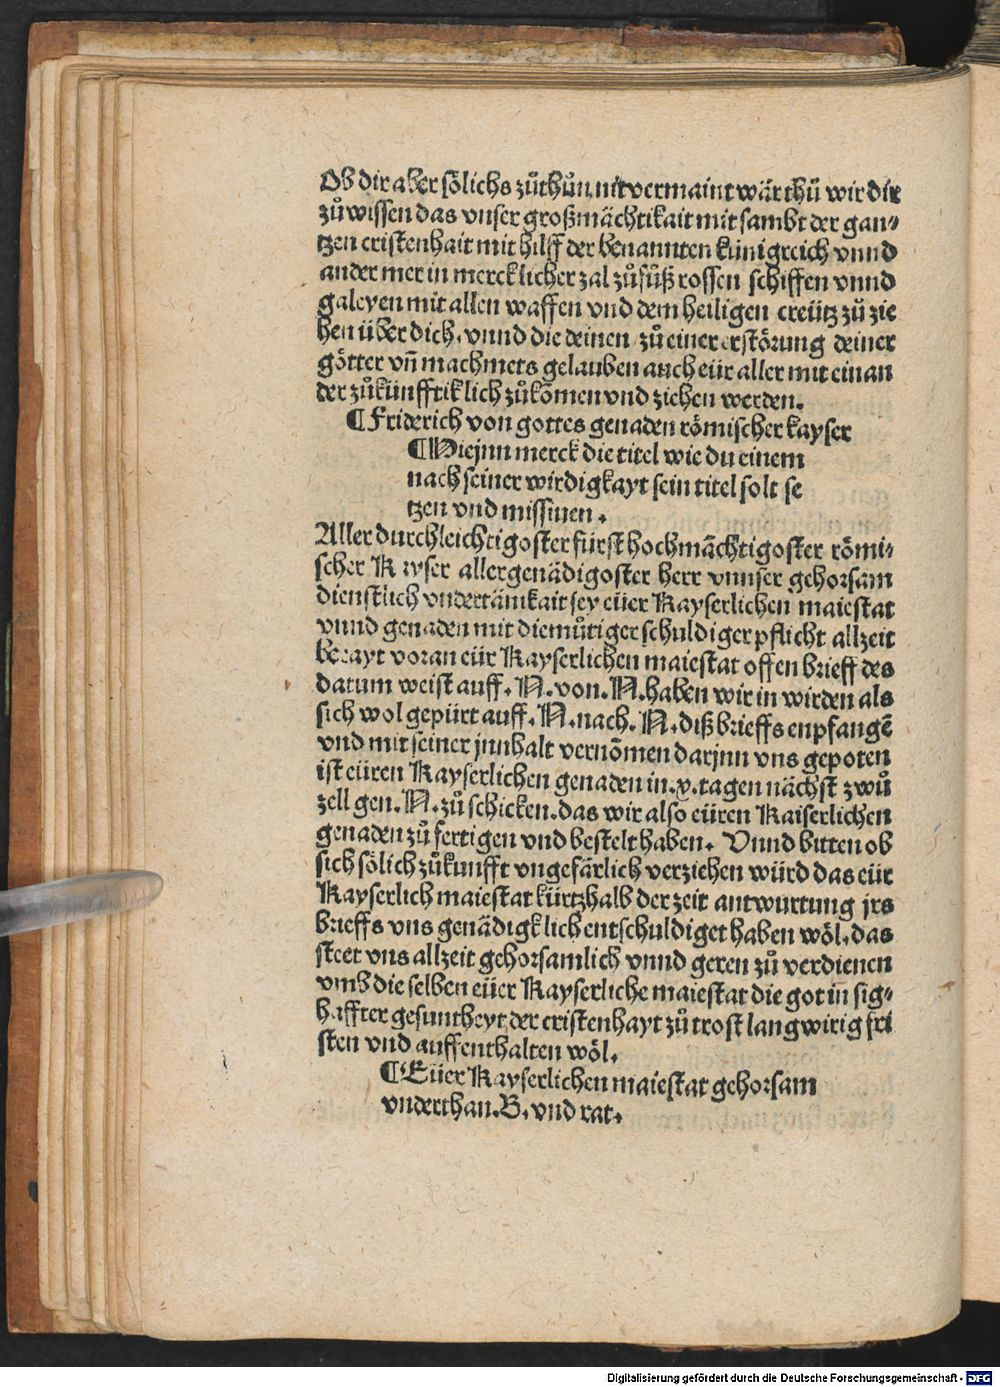 Ob dir aber sölichs zůthůn nit vermaint wär thů wir dir
zů wissen das vnser großmächtikait mit sambt der gan⸗
tzen cristenhait mit hilff der benannten künigreich vnnd
ander mer in mercklicher zal zůfůß rossen schiffen vnnd
galeyen mit allen waffen vnd dem heiligen creütz zů zie
hen über dich, vnnd die deinen zů einer erstörung deiner
götter vñ machmets gelauben auch eür aller mit einan
der zůkünfftiklich zůkōmen vnd ziehen werden.
¶ Friderich von gottes genaden römischer kayser
¶ Hiejnn merck die titel wie du einem
nach seiner wirdigkayt sein titel solt se
tzen vnd missiuen.
Aller durchleichtigoster fürst hochmächtigoster römi⸗
scher Kayser allergenädigoster herr vnnser gehorsam
dienstlich vndertänikait sey eüer Kayserlichen maiestat
vnnd genaden mit diemůtiger schuldiger pflicht allzeit
berayt voran eür Kayserlichen maiestat offen brieff des
datum weist auff. N. von. N. haben wir in wirden als
sich wol gepürt auff. N. nach. N. diß brieffs enpfangē
vnd mit seiner jnnhalt vernōmen darjnn vns gepoten
ist eüren Kayserlichen genaden in .x. tagen nächst zwů
zell gen. N. zů schicken. das wir also eüren Kaiserlichen
genaden zů fertigen vnd bestelt haben. Vnnd bitten ob
sich sölich zůkunfft vngefärlich verziehen würd das eür
Kayserlich maiestat kürtzhalb der zeit antwurtung jrs
brieffs vns genädigklich entschuldiget haben wöl. das
steet vns allzeit gehorsamlich vnnd geren zů verdienen
vmb die selben eüer Kayserliche maiestat die got in sig⸗
haffter gesuntheyt der cristenhayt zů trost langwirig fri
sten vnd auffenthalten wöl.
¶ Eüer Kayserlichen maiestat gehorsam
vnderthan. B. vnd rat.
Digitalisierung gefördert durch die Deutsche Forschungsgemeinschaft - DFG